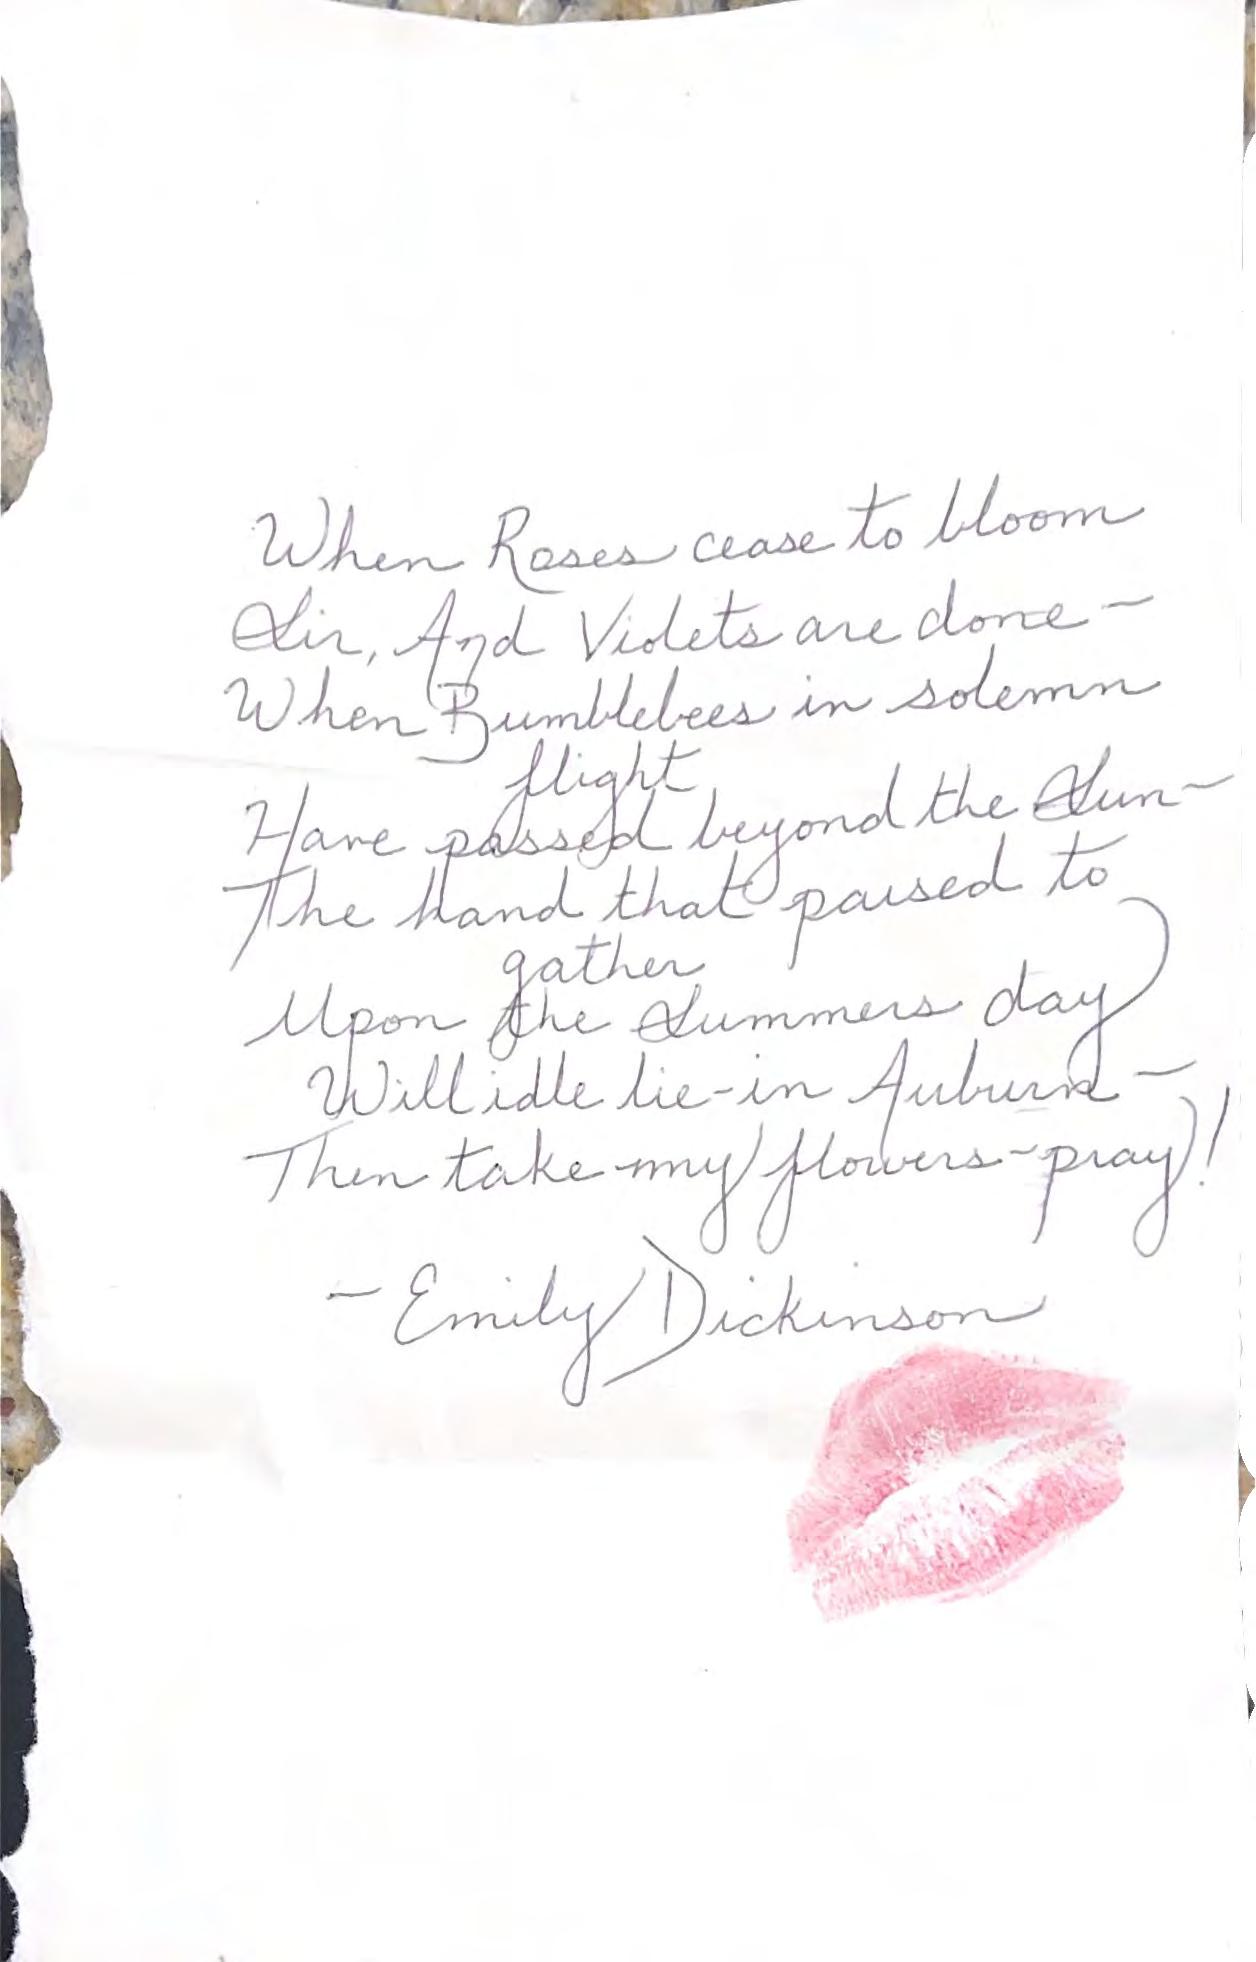 When Roses cease to bloom
Sir, And Violets are done –
When Bumblebees in solemn
flight
Have passed beyond the Sun –
The hand that paused to
gather
Upon the Summers day
Will idle lie – in Auburn –
Then take my flowers – pray!
– Emily Dickinson